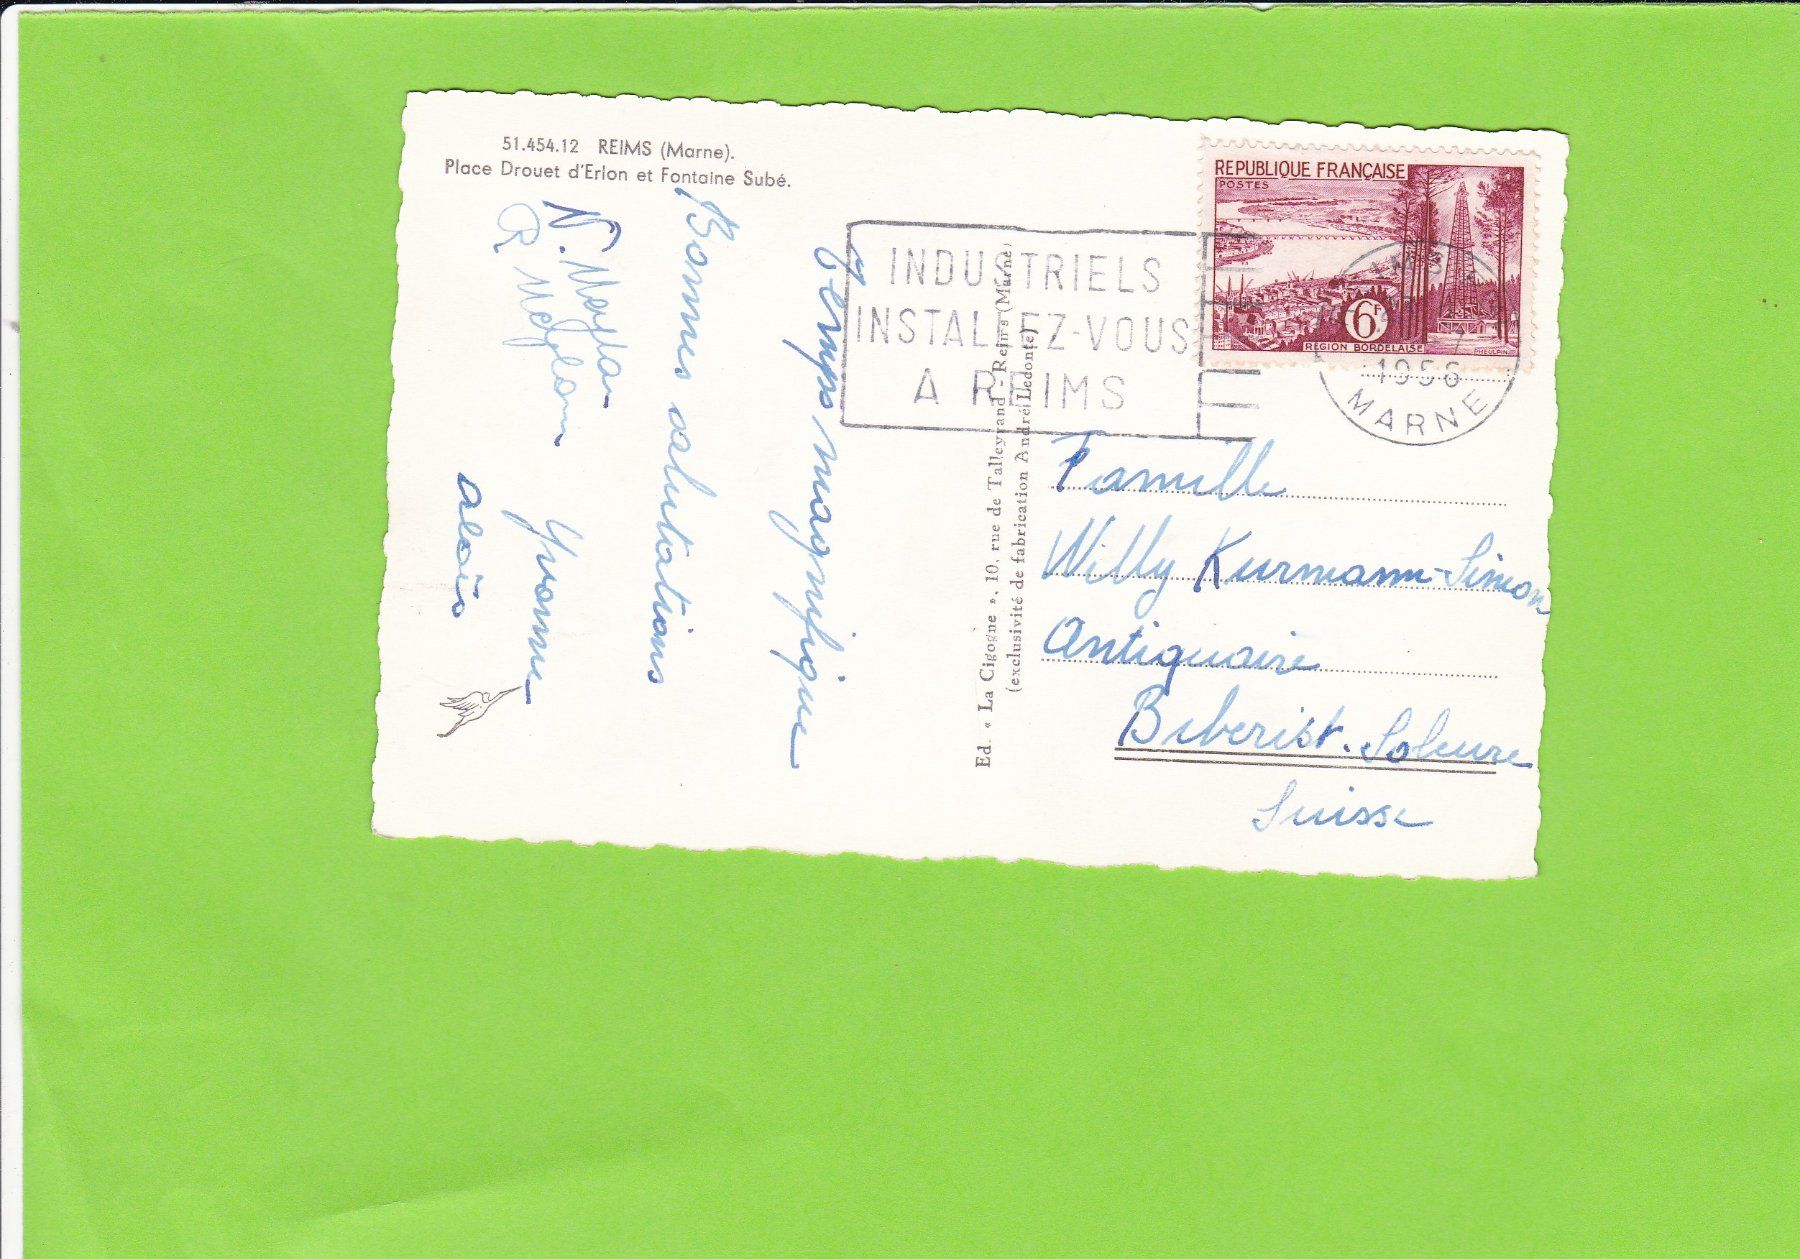 51.454.12 REIMS (Marne).
Place Drouet d'Erlon et Fontaine Subé.
Temps magnifique
Bonnes salutations
N. Meylan
R Meylan Yvonne
Aloïs
Ed. « La Cigogne », 10, rue de Talleyrand - Reims (Marne)
(exclusivité de fabrication André Ledonté)
INDUSTRIELS
INSTALLEZ-VOUS
A REIMS
REPUBLIQUE FRANÇAISE
POSTES
6F
RÉGION BORDELAISE
PHEULPIN
1956
MARNE
Famille
Willy Kurmann-Simon
Antiquaire
Biberist. Soleure
Suisse